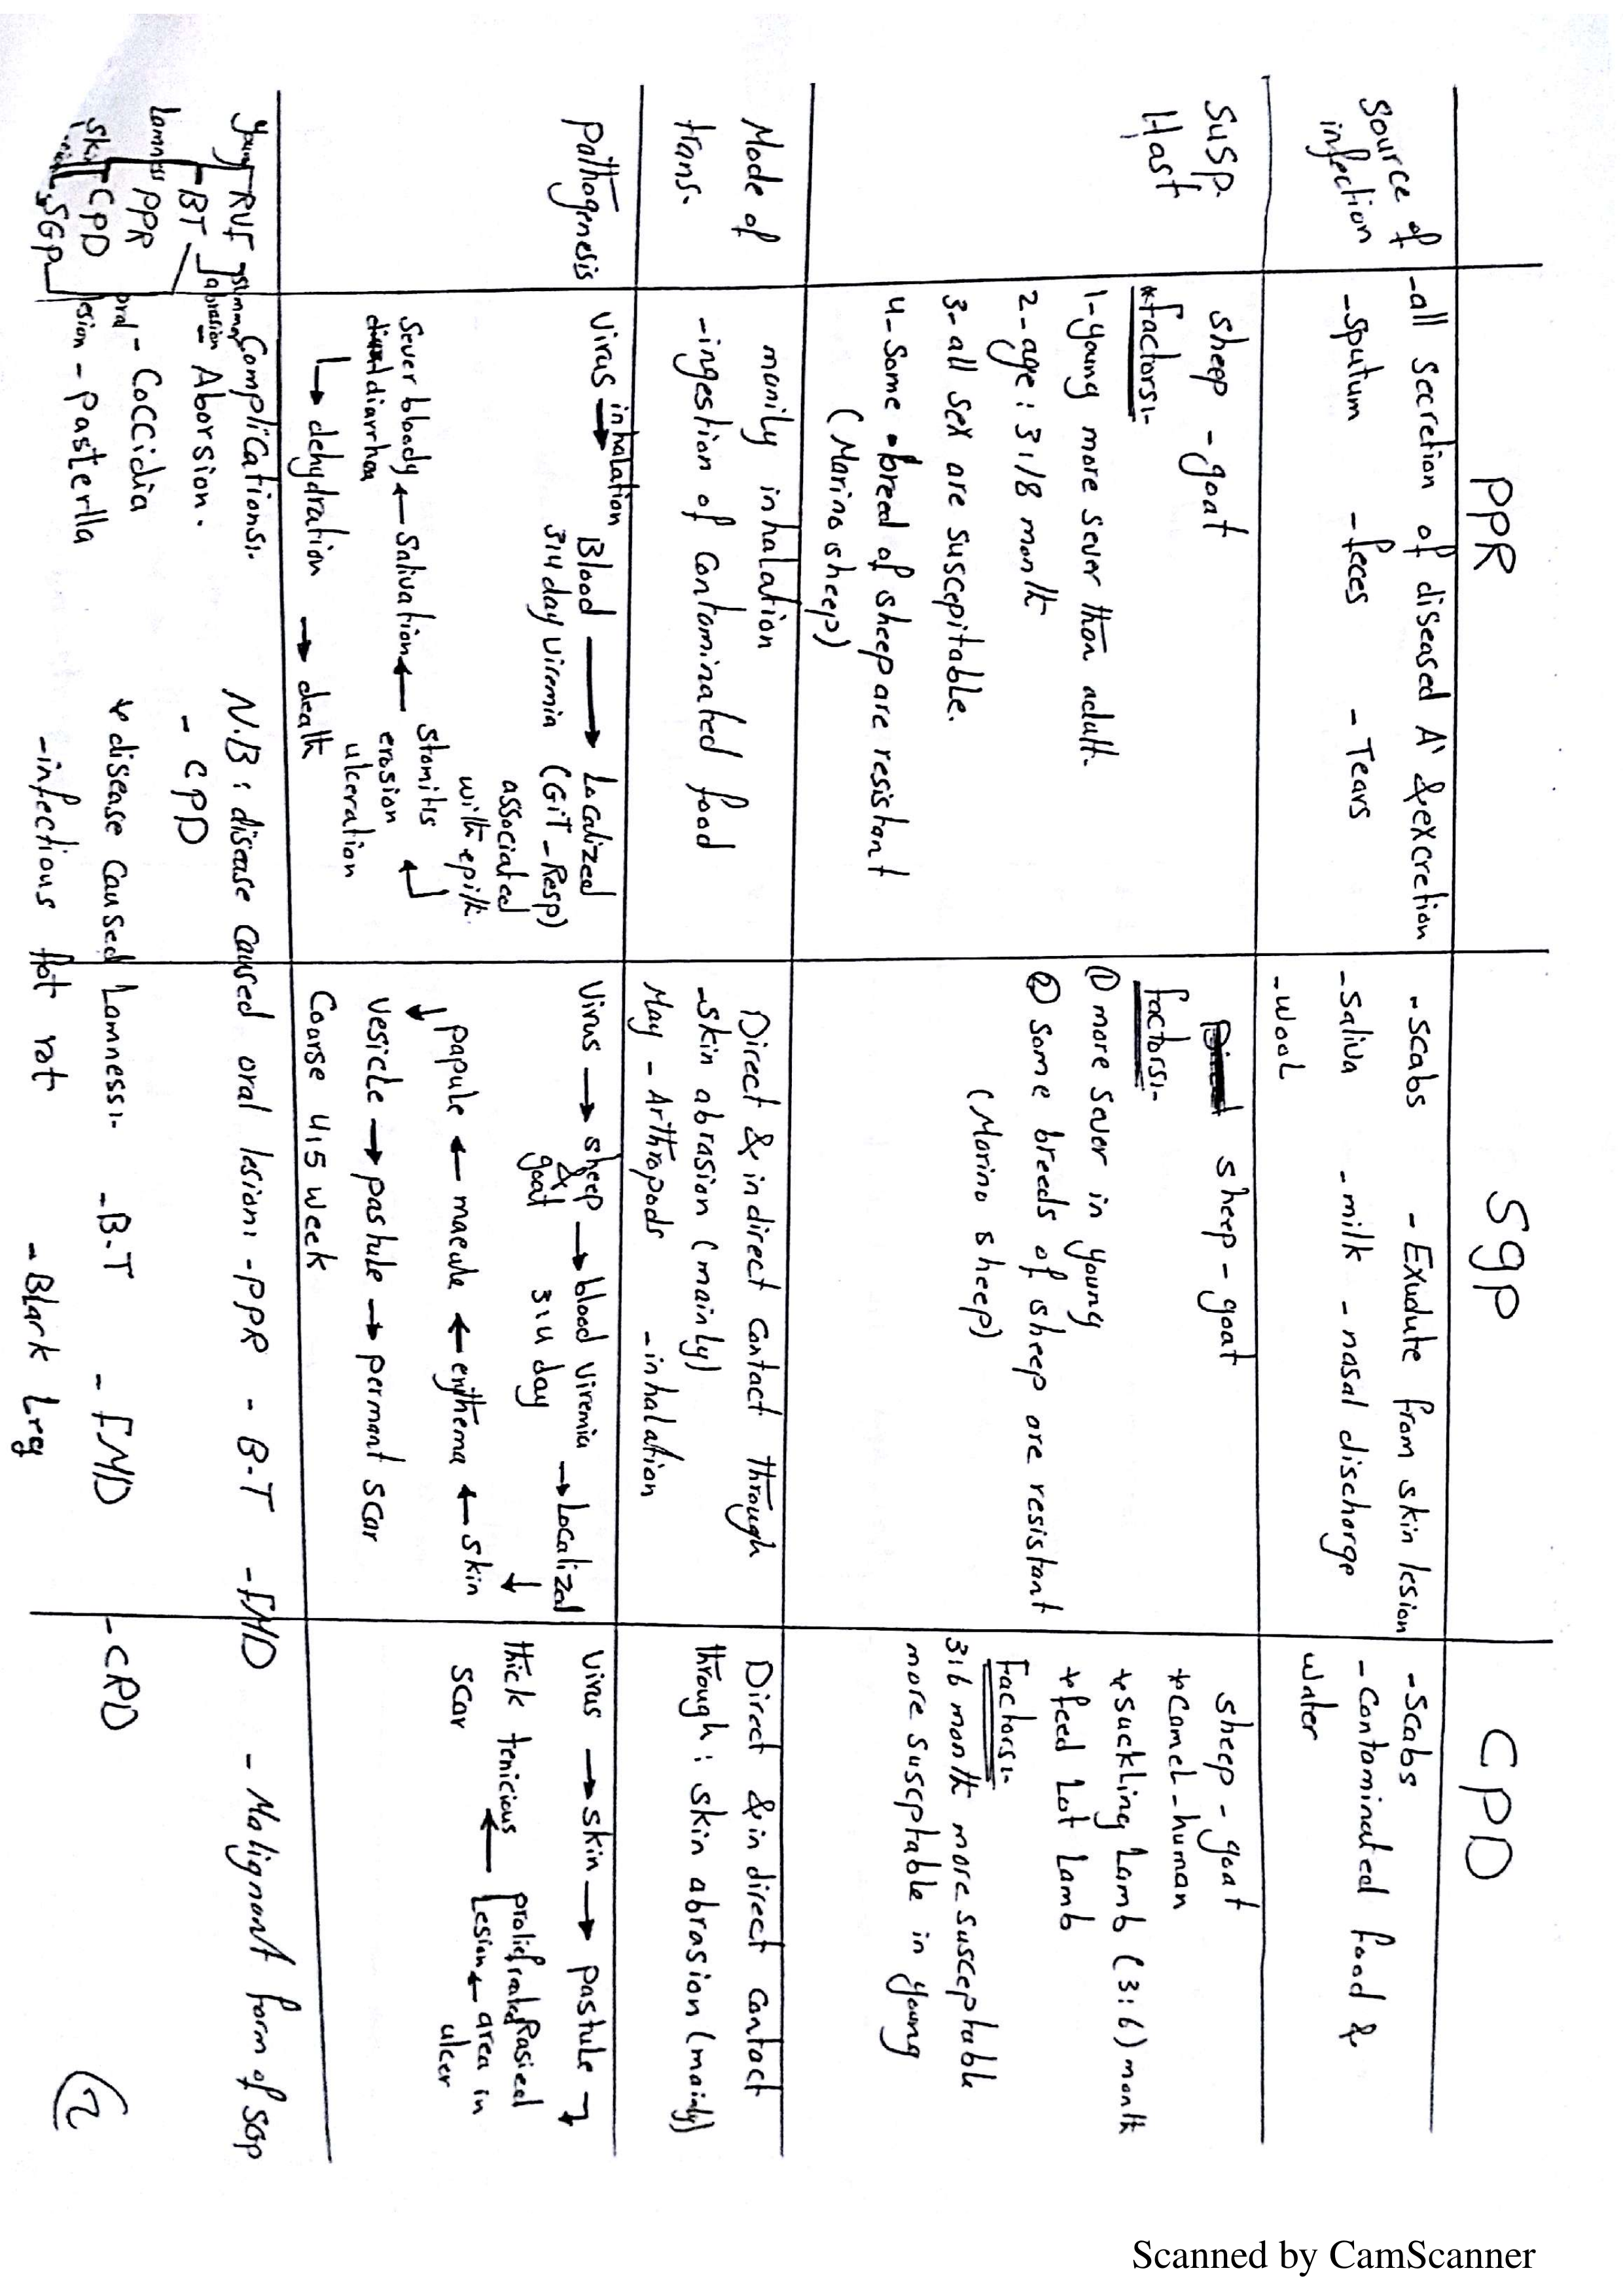 PPR
Sgp
CPD
Source of
infection
-all secretion of diseased A' & excretion
-sputum -feces -Tears
-scabs -Exudute from skin lesion
-saliva -milk -nasal discharge
-wool
-scabs
-Contaminated food &
water
Susp.
Hast
sheep -goat
*factors:-
1-young more sever than adult.
2-age: 3:18 month
3-all sex are suscepitable.
4-Some breed of sheep are resistant
(Marino sheep)
sheep-goat
factors:-
① more sever in young
② some breeds of sheep are resistant
(Marino sheep)
sheep-goat
*camel-human
*suckling Lamb (3:6) month
*feed Lot Lamb
Factors:-
3:6 month more susceptable
more susceptable in young
Mode of
trans.
manily inhalation
-ingestion of contaminated food
Direct & indirect contact through
-skin abrasion (mainly)
May -Arthropods -inhalation
Direct & indirect contact
through: skin abrasion (mainly)
pathogenesis
Virus inhalation → Blood → Localized
3:4 day viremia (GiT-Resp)
associated
with epith.
stomitis
erosion
ulceration
Sever bloody ← Salivation ←
diarrhea
↳ dehydration → death
Virus → sheep & goat → blood viremia → Localized
3:4 day ↓
papule ← macule ← erythema ← skin
↓
vesicle → pastule → permant scar
Coarse 4:5 week
Virus → skin → pastule
thick tenicious ← proliefrated Lesion ← Rasied area in ulcer
scar
young RVF
BT
Lamness PPR
skin CPD
SGP
oral
lesion
Complications:-
-Aborsion.
-Coccidia
-Pasterlla
N.B: disease caused oral lesion: -PPR -B.T -FMD -Malignant form of SGP
-CPD
* disease caused Lamness:- -B.T -FMD -CPD
-infectious fot rot -Blark Leg
2
Scanned by CamScanner